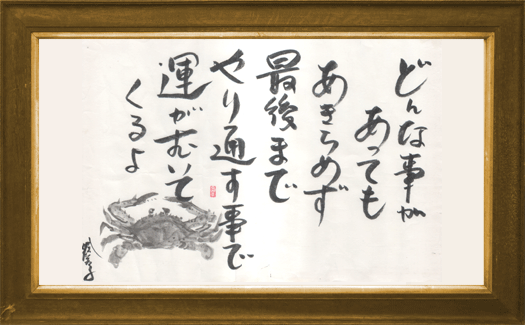 どんな事が
あっても
あきらめず
最後まで
やり通す事で
運がむいて
くるよ